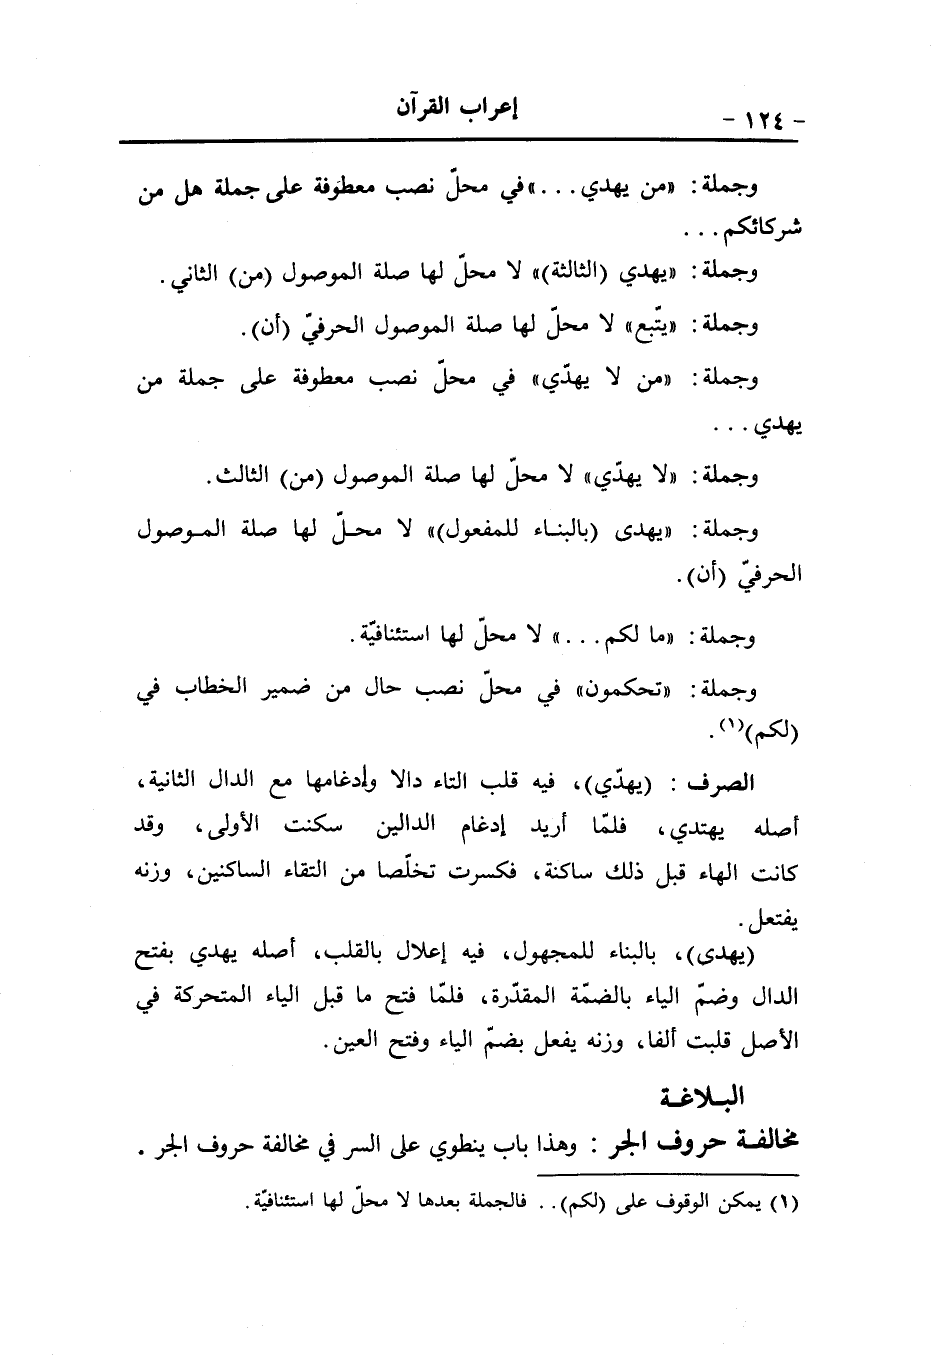 - ١٢٤ -
إعراب القرآن
وجملة: «من يهدي...» في محلّ نصب معطوفة على جملة هل من
شركائكم...
وجملة: «يهدي (الثالثة)» لا محلّ لها صلة الموصول (من) الثاني.
وجملة: «يتّبع» لا محلّ لها صلة الموصول الحرفيّ (أن).
وجملة: «من لا يهدّي» في محلّ نصب معطوفة على جملة من
يهدي...
وجملة: «لا يهدّي» لا محلّ لها صلة الموصول (من) الثالث.
وجملة: «يهدى (بالبناء للمفعول)» لا محلّ لها صلة الموصول
الحرفيّ (أن).
وجملة: «ما لكم...» لا محلّ لها استئنافيّة.
وجملة: «تحكمون» في محلّ نصب حال من ضمير الخطاب في
(لكم)(١).
الصرف : (يهدّي)، فيه قلب التاء دالا وإدغامها مع الدال الثانية،
أصله يهتدي، فلمّا أريد إدغام الدالين سكنت الأولى، وقد
كانت الهاء قبل ذلك ساكنة، فكسرت تخلّصا من التقاء الساكنين، وزنه
يفتعل.
(يهدى)، بالبناء للمجهول، فيه إعلال بالقلب، أصله يهدي بفتح
الدال وضمّ الياء بالضمّة المقدّرة، فلمّا فتح ما قبل الياء المتحركة في
الأصل قلبت ألفا، وزنه يفعل بضمّ الياء وفتح العين.
البلاغة
مخالفة حروف الجر : وهذا باب ينطوي على السر في مخالفة حروف الجر .
(١) يمكن الوقوف على (لكم).. فالجملة بعدها لا محلّ لها استئنافيّة.